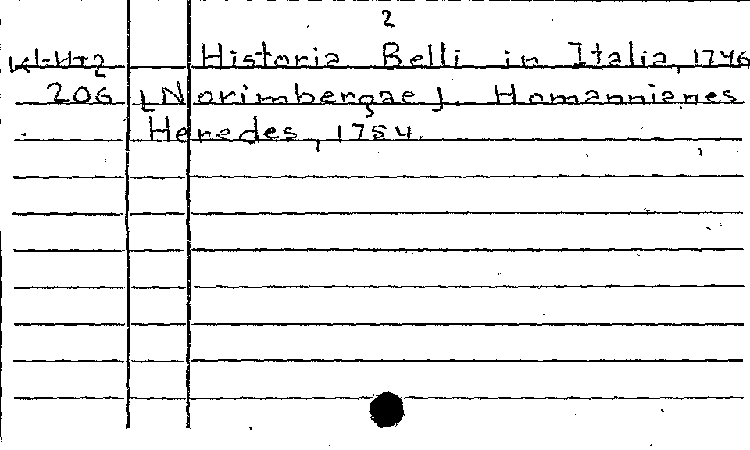 2
Historia Belli in Italia, 1746
206 [Norimbergae]. Homannianes
Heredes, 1754.